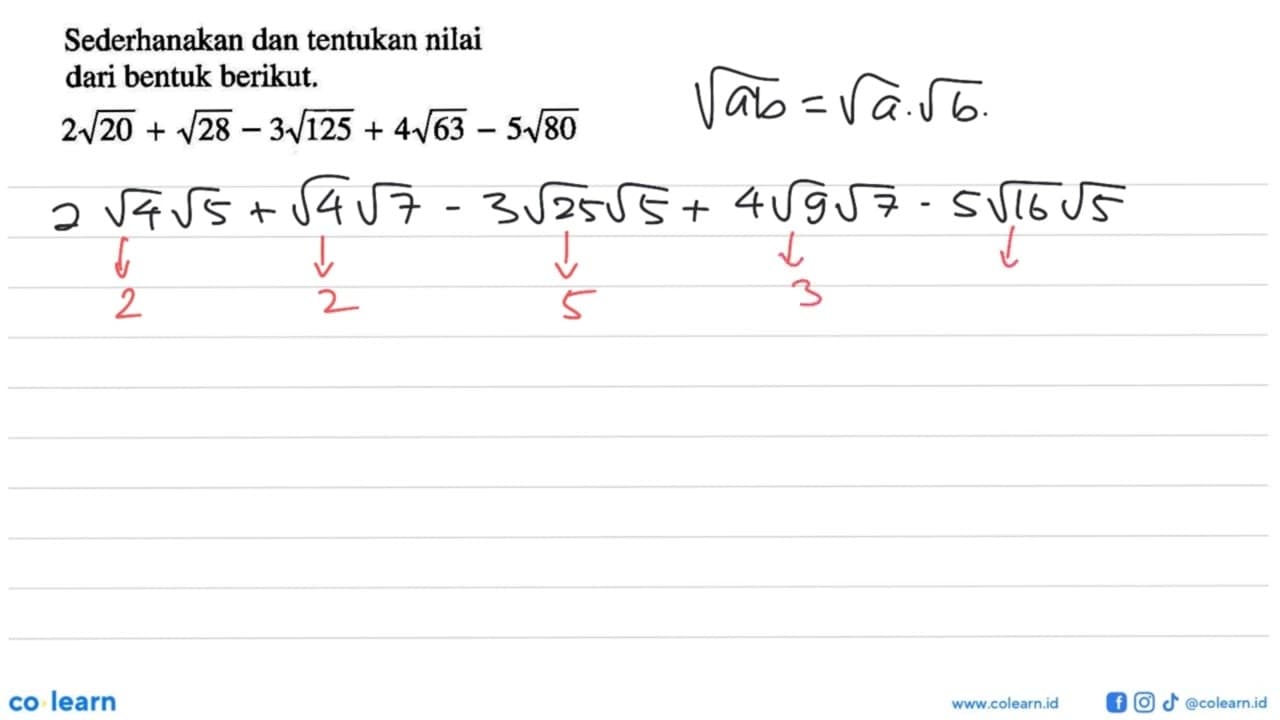 Sederhanakan dan tentukan nilai
dari bentuk berikut.
2√20 + √28 − 3√125 + 4√63 − 5√80
√ab = √a.√b.
2√4√5 + √4√7 - 3√25√5 + 4√9√7 - 5√16√5
↓ ↓ ↓ ↓ ↓
2 2 5 3
co learn
www.colearn.id @colearn.id